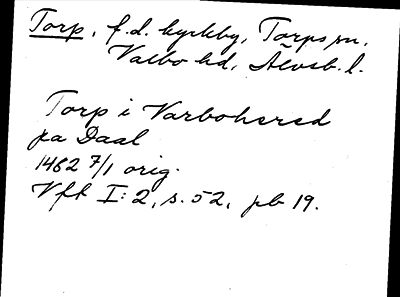 Torp, f.d. kyrkby, Torps sn,
Valbo hd, Älvsb. l.
Torp i Varbohered
pa Daal
1462 7/1 orig.
Vft I:2, s. 52, pb 19.